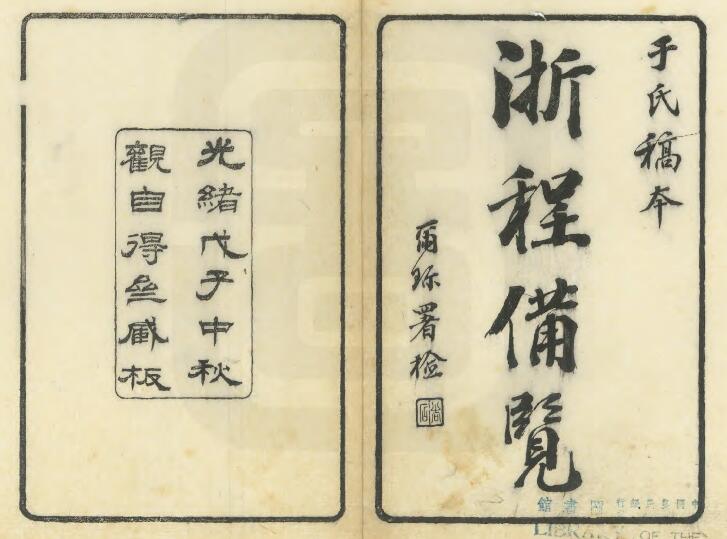 于氏稿本
浙程備覽
爾珎署檢
光緒戊子中秋
觀自得亝臧板
圖書館
LIBRARY OF THE